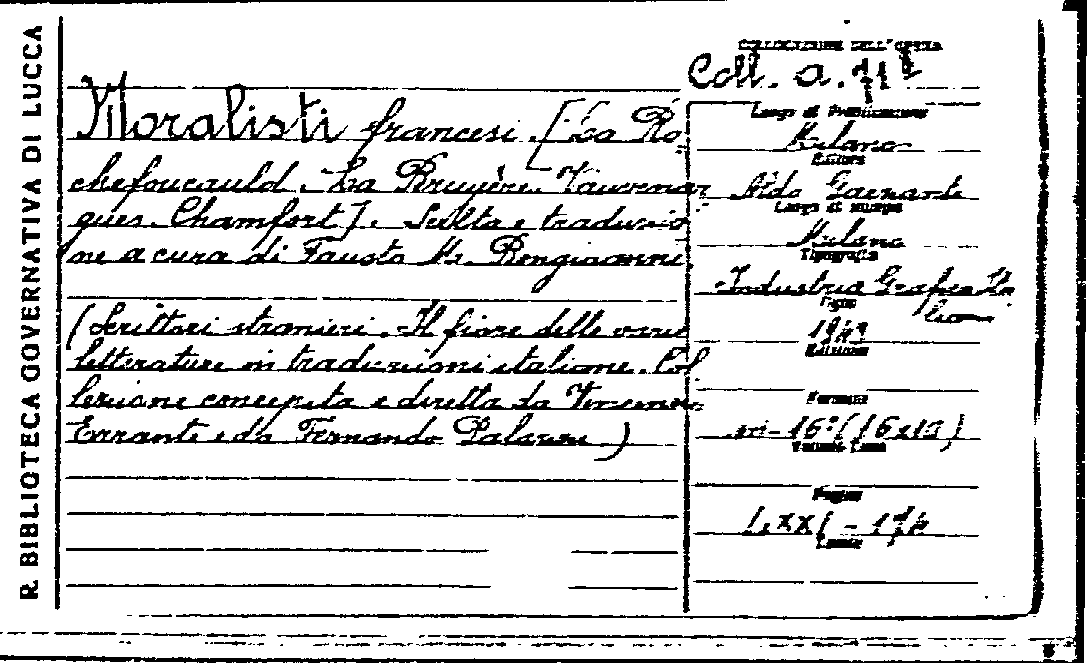 R. BIBLIOTECA GOVERNATIVA DI LUCCA
Moralisti francesi. [La Ro-
chefoucauld. La Bruyère. Vauvenar-
gues. Chamfort]. Scelta e traduzio
ne a cura di Fausto M. Bongioanni.
(Scrittori stranieri. Il fiore delle varie
letterature in traduzioni italiane. Col
lezione concepita e diretta da Vincenzo
Errante e da Fernando Palazzi.)
COLLOCAZIONE DELL'OPERA
Coll. a.
Luogo di Pubblicazione
Milano
Editore
Aldo Garzanti
Luogo di stampa
Milano
Tipografia
Industria Grafica Ita
liana
1943
Edizione
Formato
in-16° (16x10)
Pagine
LXXI - 174